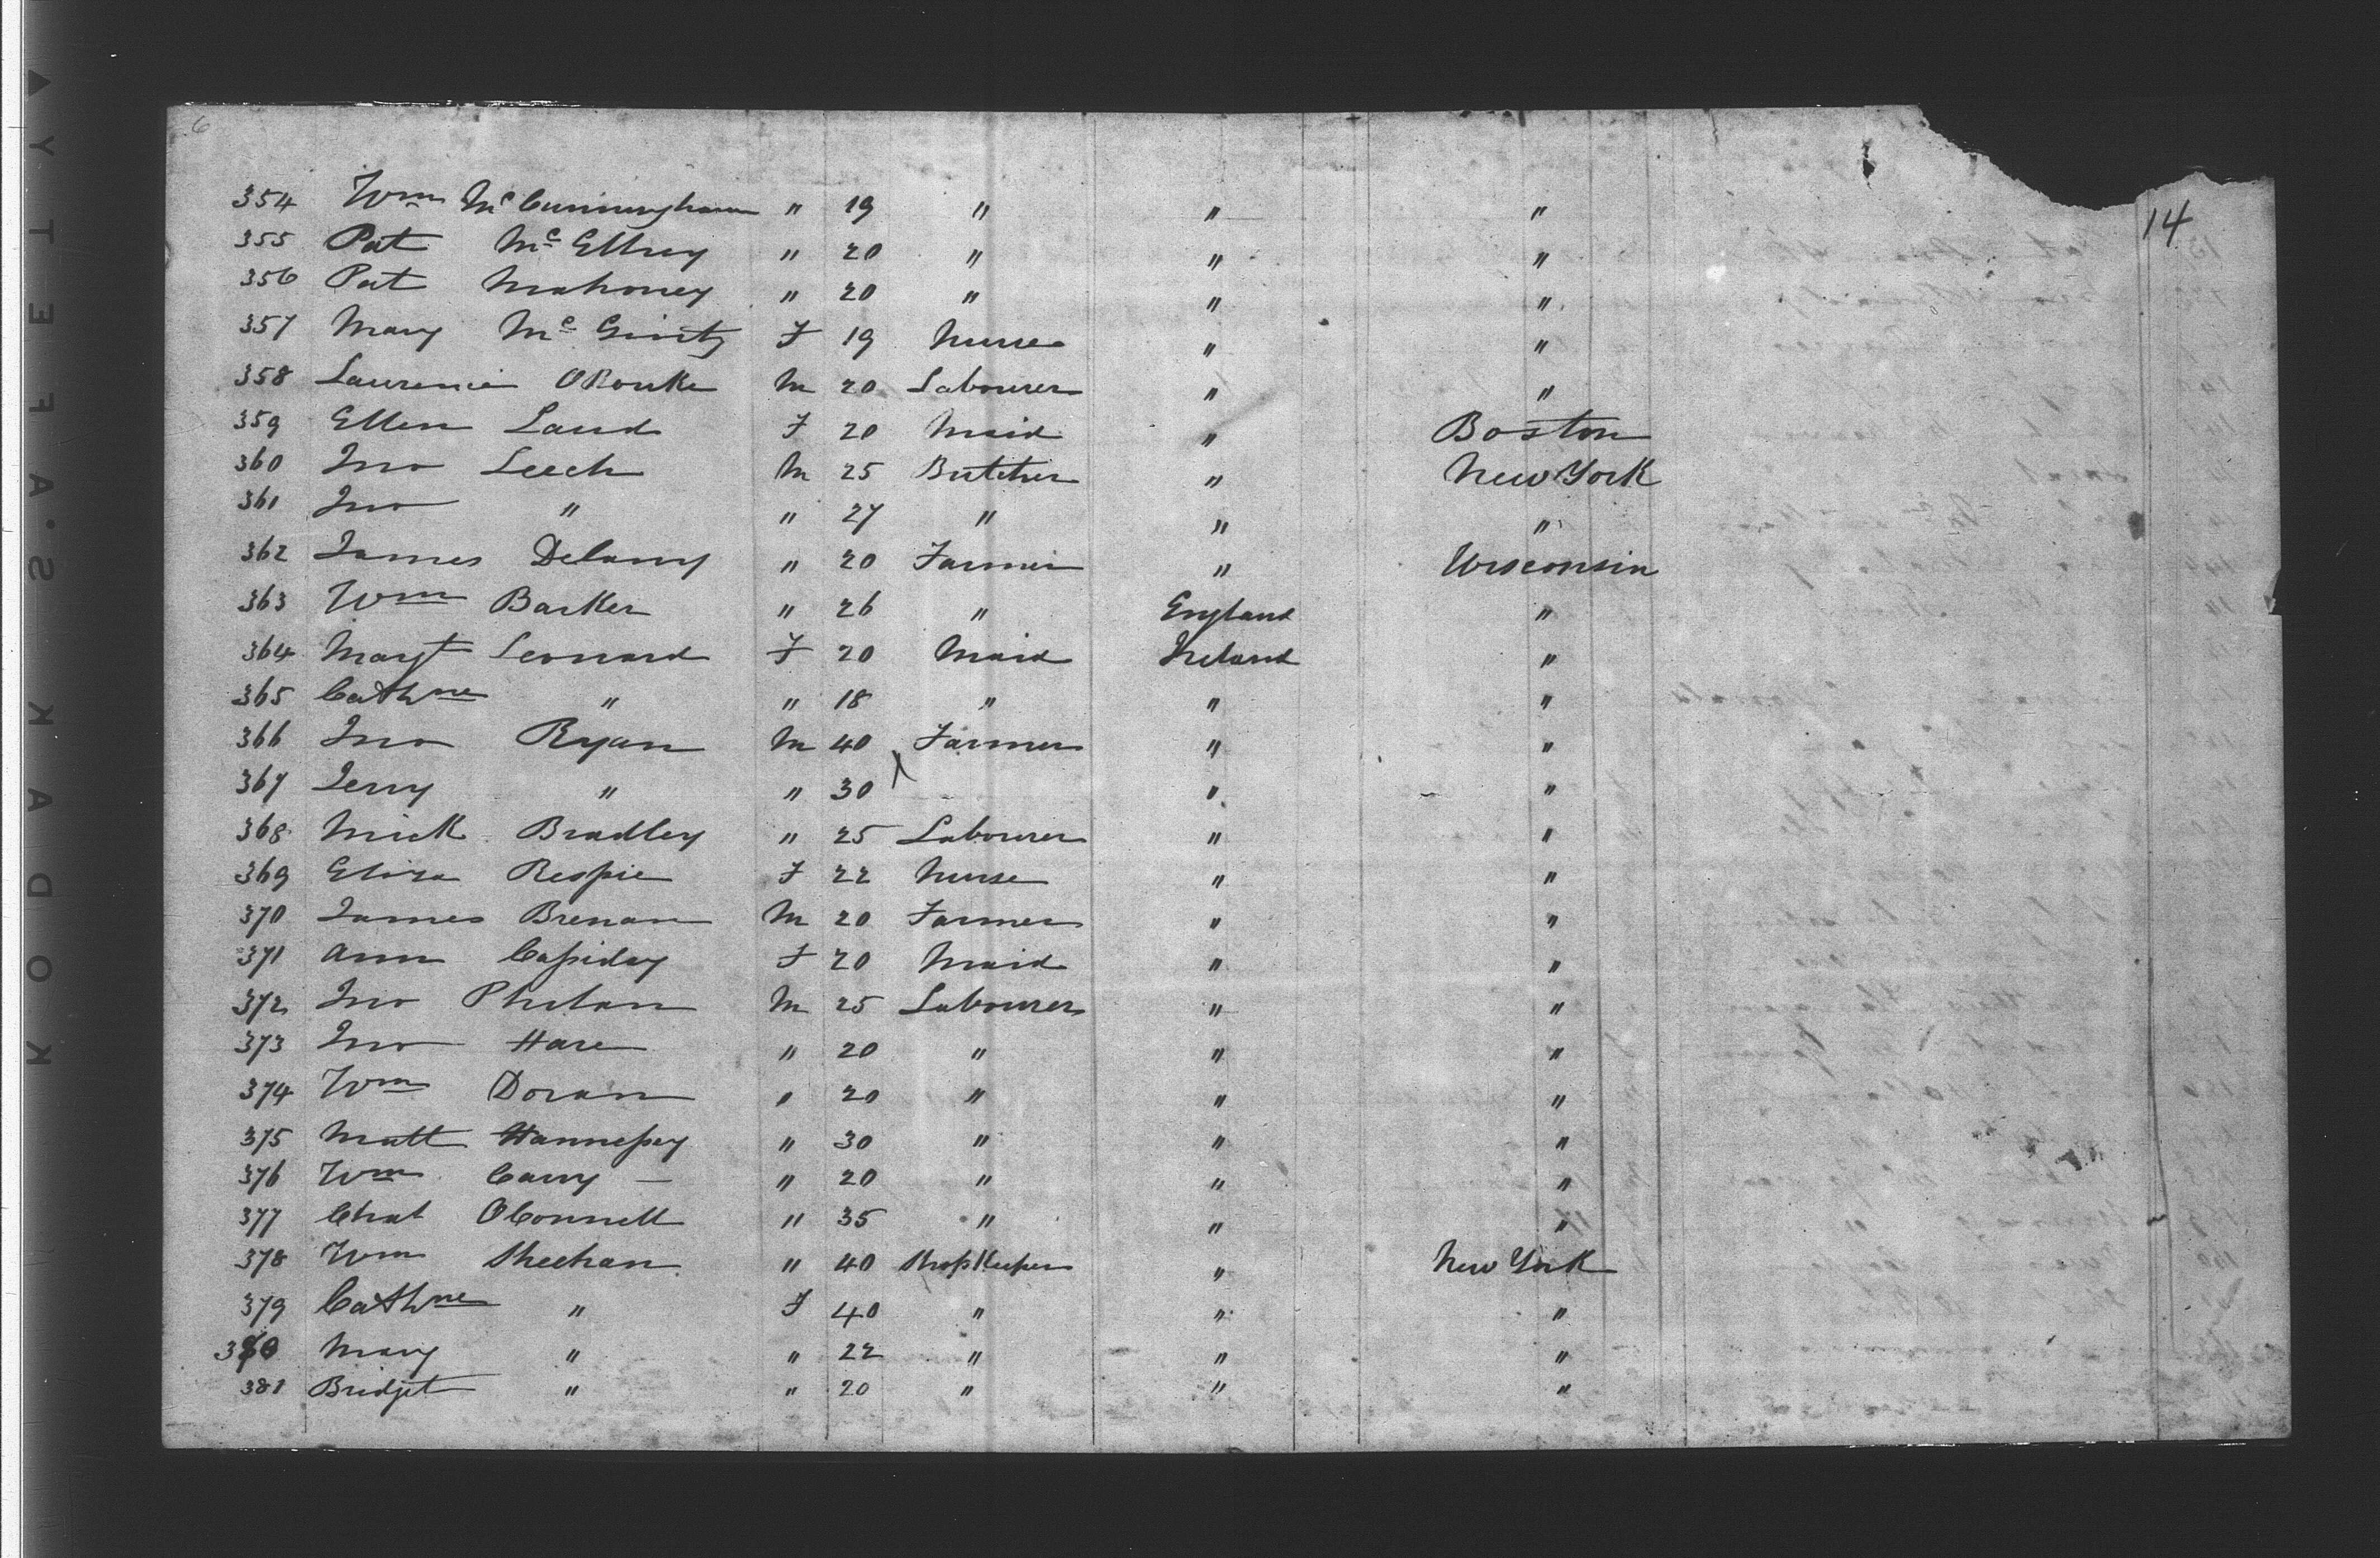 6
14
354 Wm McCunningham " 19 " " "
355 Pat McEllroy " 20 " " "
356 Pat Mahoney " 20 " " "
357 Mary McGinty F 19 Nurse " "
358 Laurence ORourke M 20 Labourer " "
359 Ellen Laud F 20 Maid " Boston
360 Jno Leech M 25 Butcher " New York
361 Jno " " 27 " " "
362 James Delany " 20 Farmer " Wisconsin
363 Wm Barker " 26 " England "
364 Margt Leonard F 20 Maid Ireland "
365 Cathne " " 18 " " "
366 Jno Ryan M 40 Farmer " "
367 Jerry " " 30 " "
368 Mick Bradley " 25 Labourer " "
369 Eliza Respie F 22 Nurse " "
370 James Brenan M 20 Farmer " "
371 Ann Cassiday F 20 Maid " "
372 Jno Phelan M 25 Labourer " "
373 Jno Hare " 20 " " "
374 Wm Doran " 20 " " "
375 Matt Hannessey " 30 " " "
376 Wm Carry — " 20 " " "
377 Chat OConnell " 35 " " "
378 Wm Sheehan " 40 ShopKeeper " New York
379 Cathne " F 40 " " "
380 Mary " " 22 " " "
381 Bridjet " " 20 " " "
KODAK S.A.FETY